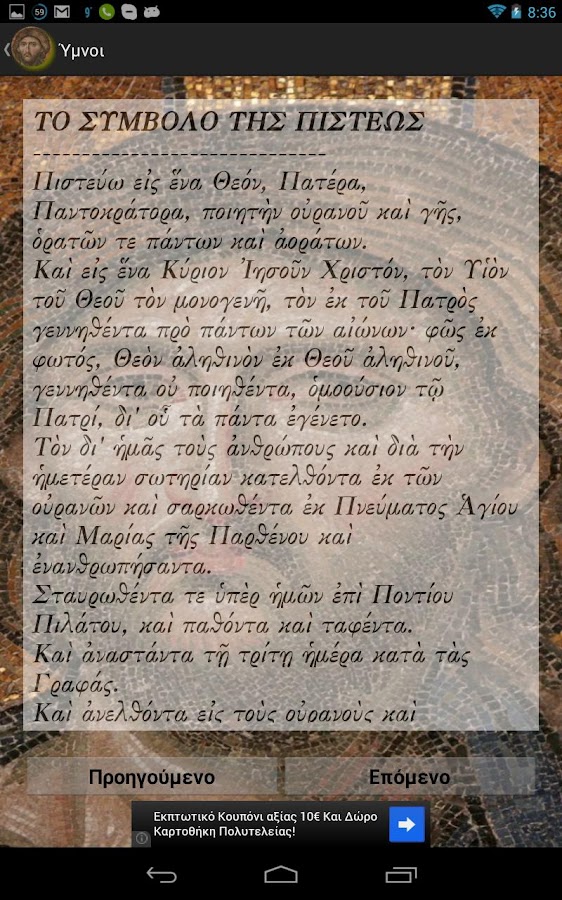 59
g+
8:36
Ύμνοι
ΤΟ ΣΥΜΒΟΛΟ ΤΗΣ ΠΙΣΤΕΩΣ
------------------------------
Πιστεύω εἰς ἕνα Θεόν, Πατέρα,
Παντοκράτορα, ποιητὴν οὐρανοῦ καὶ γῆς,
ὁρατῶν τε πάντων καὶ ἀοράτων.
Καὶ εἰς ἕνα Κύριον Ἰησοῦν Χριστόν, τὸν Υἱὸν
τοῦ Θεοῦ τὸν μονογενῆ, τὸν ἐκ τοῦ Πατρὸς
γεννηθέντα πρὸ πάντων τῶν αἰώνων· φῶς ἐκ
φωτός, Θεὸν ἀληθινὸν ἐκ Θεοῦ ἀληθινοῦ,
γεννηθέντα οὐ ποιηθέντα, ὁμοούσιον τῷ
Πατρί, δι' οὗ τὰ πάντα ἐγένετο.
Τὸν δι' ἡμᾶς τοὺς ἀνθρώπους καὶ διὰ τὴν
ἡμετέραν σωτηρίαν κατελθόντα ἐκ τῶν
οὐρανῶν καὶ σαρκωθέντα ἐκ Πνεύματος Ἁγίου
καὶ Μαρίας τῆς Παρθένου καὶ
ἐνανθρωπήσαντα.
Σταυρωθέντα τε ὑπὲρ ἡμῶν ἐπὶ Ποντίου
Πιλάτου, καὶ παθόντα καὶ ταφέντα.
Καὶ ἀναστάντα τῇ τρίτῃ ἡμέρα κατὰ τὰς
Γραφάς.
Καὶ ἀνελθόντα εἰς τοὺς οὐρανοὺς καὶ
Προηγούμενο Επόμενο
Εκπτωτικό Κουπόνι αξίας 10€ Και Δώρο
Καρτοθήκη Πολυτελείας!